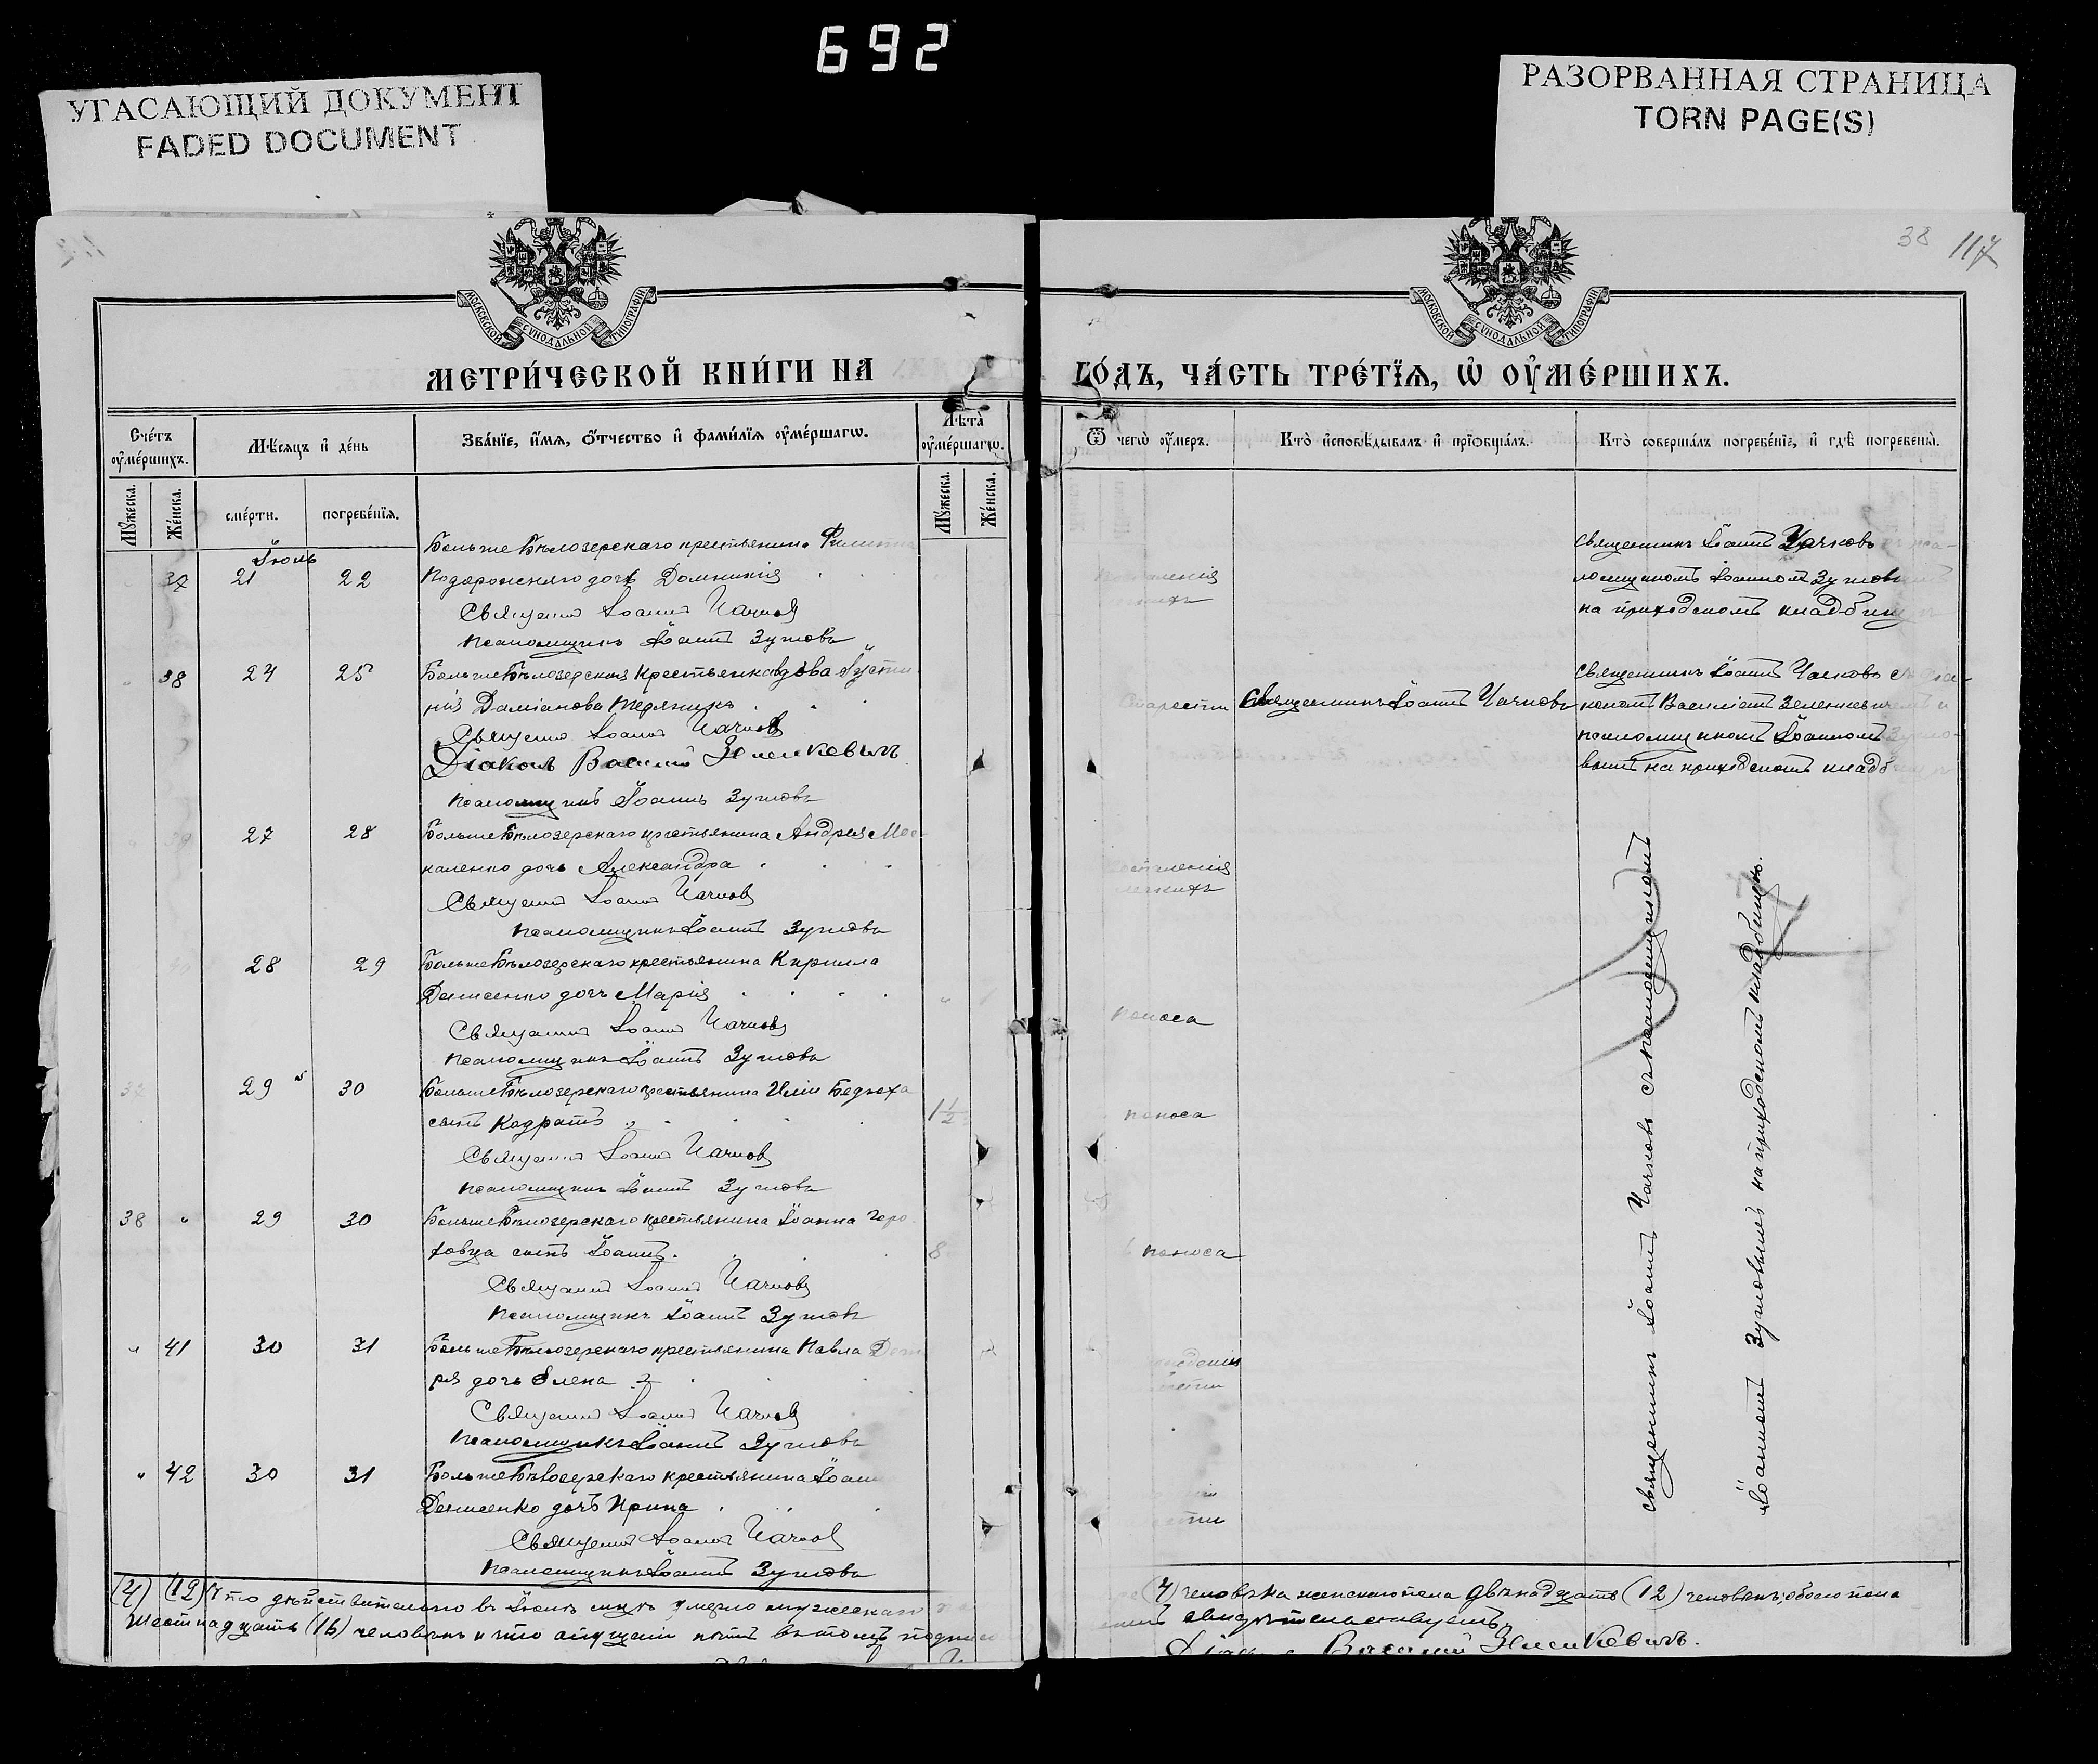 692
УГАСАЮЩИЙ ДОКУМЕНТ
FADED DOCUMENT
РАЗОРВАННАЯ СТРАНИЦА
TORN PAGE(S)
38 117
МОСКОВСКОЙ СѴНОДАЛЬНОЙ ТИПОГРАФІИ
МОСКОВСКОЙ СѴНОДАЛЬНОЙ ТИПОГРАФІИ
МЕТРИ́ЧЕСКОЙ КНИ́ГИ НА
ГО́ДЪ, ЧА́СТЬ ТРЕ́ТЇѦ, Ѡ҆ ОУ҆МЕ́РШИХЪ.
Сче́тъ оу҆ме́ршихъ.
Мѣ́сѧцъ и҆ де́нь
Зва́нїе, и҆́мѧ, ѻ҆́тчество и҆ фамѝлїѧ оу҆ме́ршагѡ.
Лѣта̀ оу҆ме́ршагѡ.
Ѿ чегѡ̀ оу҆́меръ.
Кто̀ и҆сповѣ́дывалъ и҆ прїѡбща́лъ.
Кто̀ соверша́лъ погребе́нїе, и҆ гдѣ̀ погребены̀.
Мꙋ́жеска.
Же́нска.
сме́рти.
погребе́нїѧ.
Мꙋ́жеска.
Же́нска.
Іюль
Больше Бѣлозерскаго крестьянина
37 21 22 дочь Домникія
Священникъ Іоаннъ Чачковъ
Псаломщикъ Іоаннъ Зутовъ
Священникъ Іоаннъ Чачковъ
ломщикомъ Іоанномъ
на приходскомъ кладбищѣ
38 24 25 Больше Бѣлозерская крестьянка вдова Іусти
нія Даміанова
Священникъ Іоаннъ Чачковъ
Діаконъ Василій Зеленкевичъ
Псаломщикъ Іоаннъ Зутовъ
старости Священникъ Іоаннъ Чачковъ
Священникъ Іоаннъ Чачковъ съ діа-
кономъ Василіемъ Зеленкевичемъ и
псаломщикомъ Іоанномъ Зуто-
вымъ на приходскомъ кладбищѣ
39 27 28 Больше Бѣлозерскаго крестьянина Андрея Мос-
каленко дочь Александра
Священникъ Іоаннъ Чачковъ
Псаломщикъ Іоаннъ Зутовъ
легкихъ
40 28 29 Больше Бѣлозерскаго крестьянина Кирилла
Денисенко дочь Марія
Священникъ Іоаннъ Чачковъ
Псаломщикъ Іоаннъ Зутовъ
поноса
37 29 30 Больше Бѣлозерскаго крестьянина Иліи
сынъ Кодратъ 1½
Священникъ Іоаннъ Чачковъ
Псаломщикъ Іоаннъ Зутовъ
поноса
38 „ 29 30 Больше Бѣлозерскаго крестьянина Іоанна Горо
ховца сынъ Іоаннъ 8
Священникъ Іоаннъ Чачковъ
Псаломщикъ Іоаннъ Зутовъ
поноса
„ 41 30 31 Больше Бѣлозерскаго крестьянина Павла
ря дочь Елена
Священникъ Іоаннъ Чачковъ
Псаломщикъ Іоаннъ Зутовъ
„ 42 30 31 Больше Бѣлозерскаго крестьянина
Денисенко дочь Ирина
Священникъ Іоаннъ Чачковъ
Псаломщикъ Іоаннъ Зутовъ
Священникъ Іоаннъ Чачковъ съ псаломщикомъ
Іоанномъ Зутовымъ на приходскомъ кладбищѣ.
(4) (12) Что дѣйствительно въ Іюлѣ мцѣ умерло мужескаго
шестнадцать (16) человѣкъ и что опущеній нѣтъ въ томъ
(4) человѣка женскаго пола двѣнадцать (12) человѣкъ; обоего пола
свидѣтельствуемъ
Діаконъ Василій Зеленкевичъ.